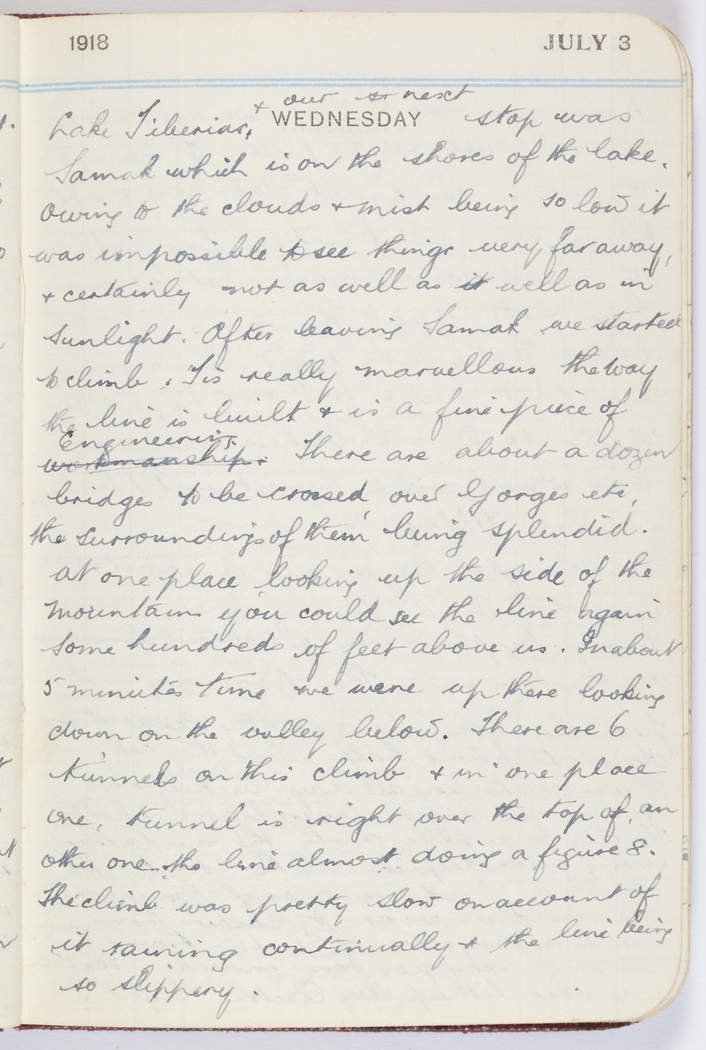 1918 JULY 3
Lake Tiberias, & our next stop was
WEDNESDAY
Samak which is on the shores of the lake.
Owing to the clouds & mist being so low it
was impossible to see things very far away,
& certainly not as well as it well as in
sunlight. After leaving Samak we started
to climb. 'Tis really marvellous the way
the line is built & is a fine piece of
Engineering
workmanship. There are about a dozen
bridges to be crossed over Gorges etc,
the surroundings of them being splendid.
At one place looking up the side of the
mountain you could see the line again
some hundreds of feet above us. In about
5 minutes time we were up there looking
down on the valley below. There are 6
tunnels on this climb & in one place
one, tunnel is right over the top of, an
other one the line almost doing a figure 8.
The climb was pretty slow on account of
it raining continually & the line being
so slippery.